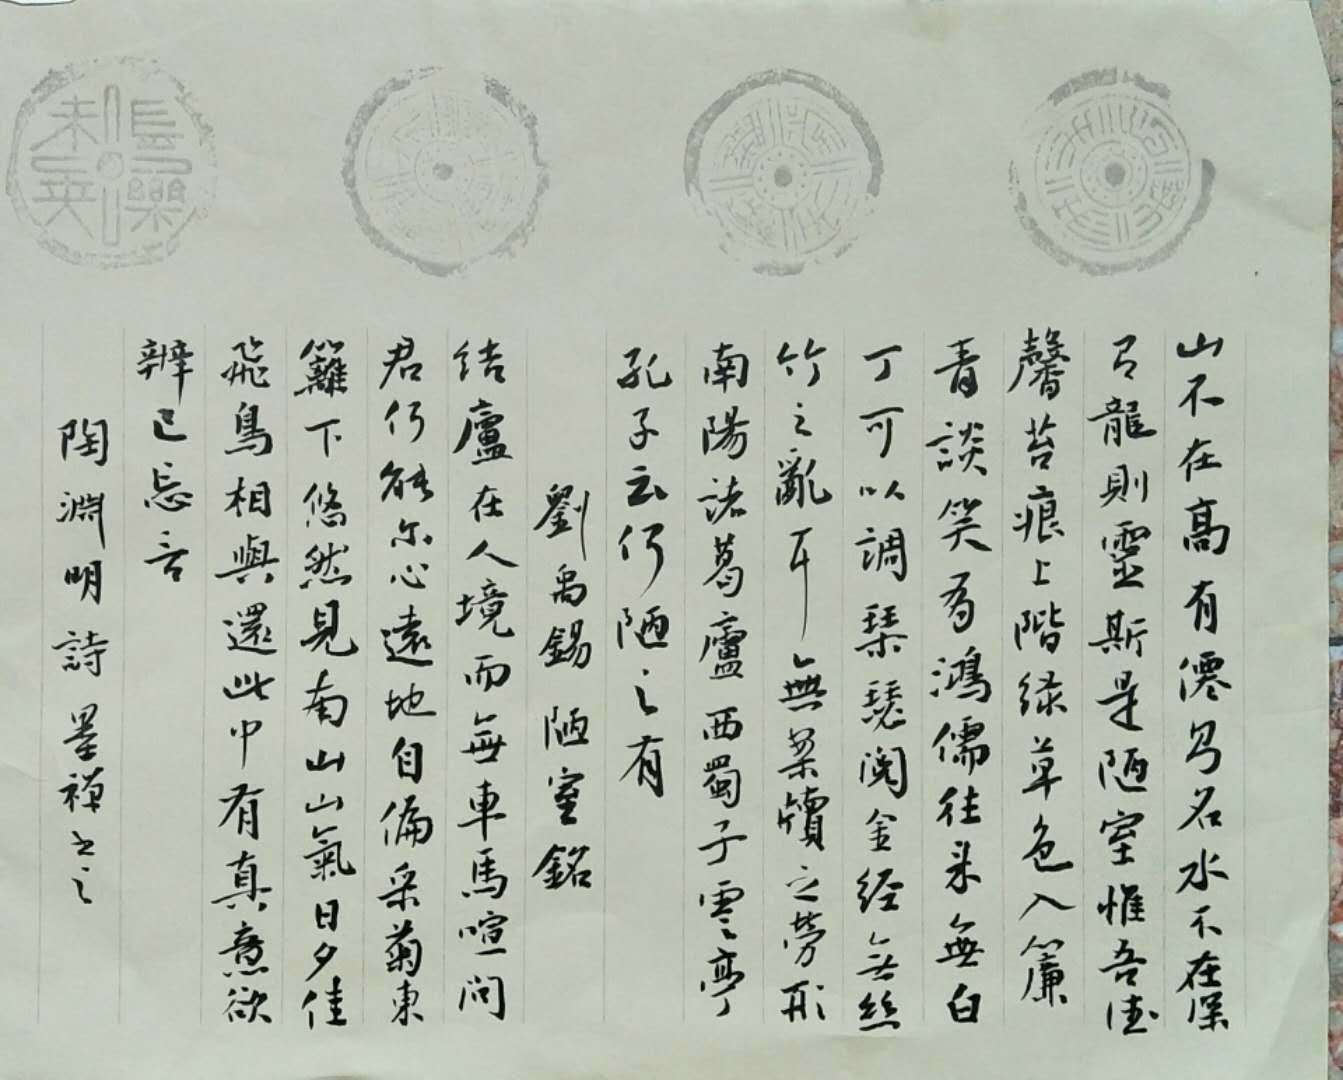 山不在高有僊則名水不在深
有龍則靈斯是陋室惟吾德
馨苔痕上階緑草色入簾
青談笑有鴻儒往来無白
丁可以調琴瑟閲金経無絲
竹之亂耳無案牘之勞形
南陽諸葛廬西蜀子雲亭
孔子云何陋之有
劉禹錫 陋室銘
结廬在人境而無車馬喧问
君何能尔心遠地自偏采菊東
籬下悠然見南山山氣日夕佳
飛鳥相與還此中有真意欲
辨已忘言
陶淵明詩 墨禪書之
長樂未央